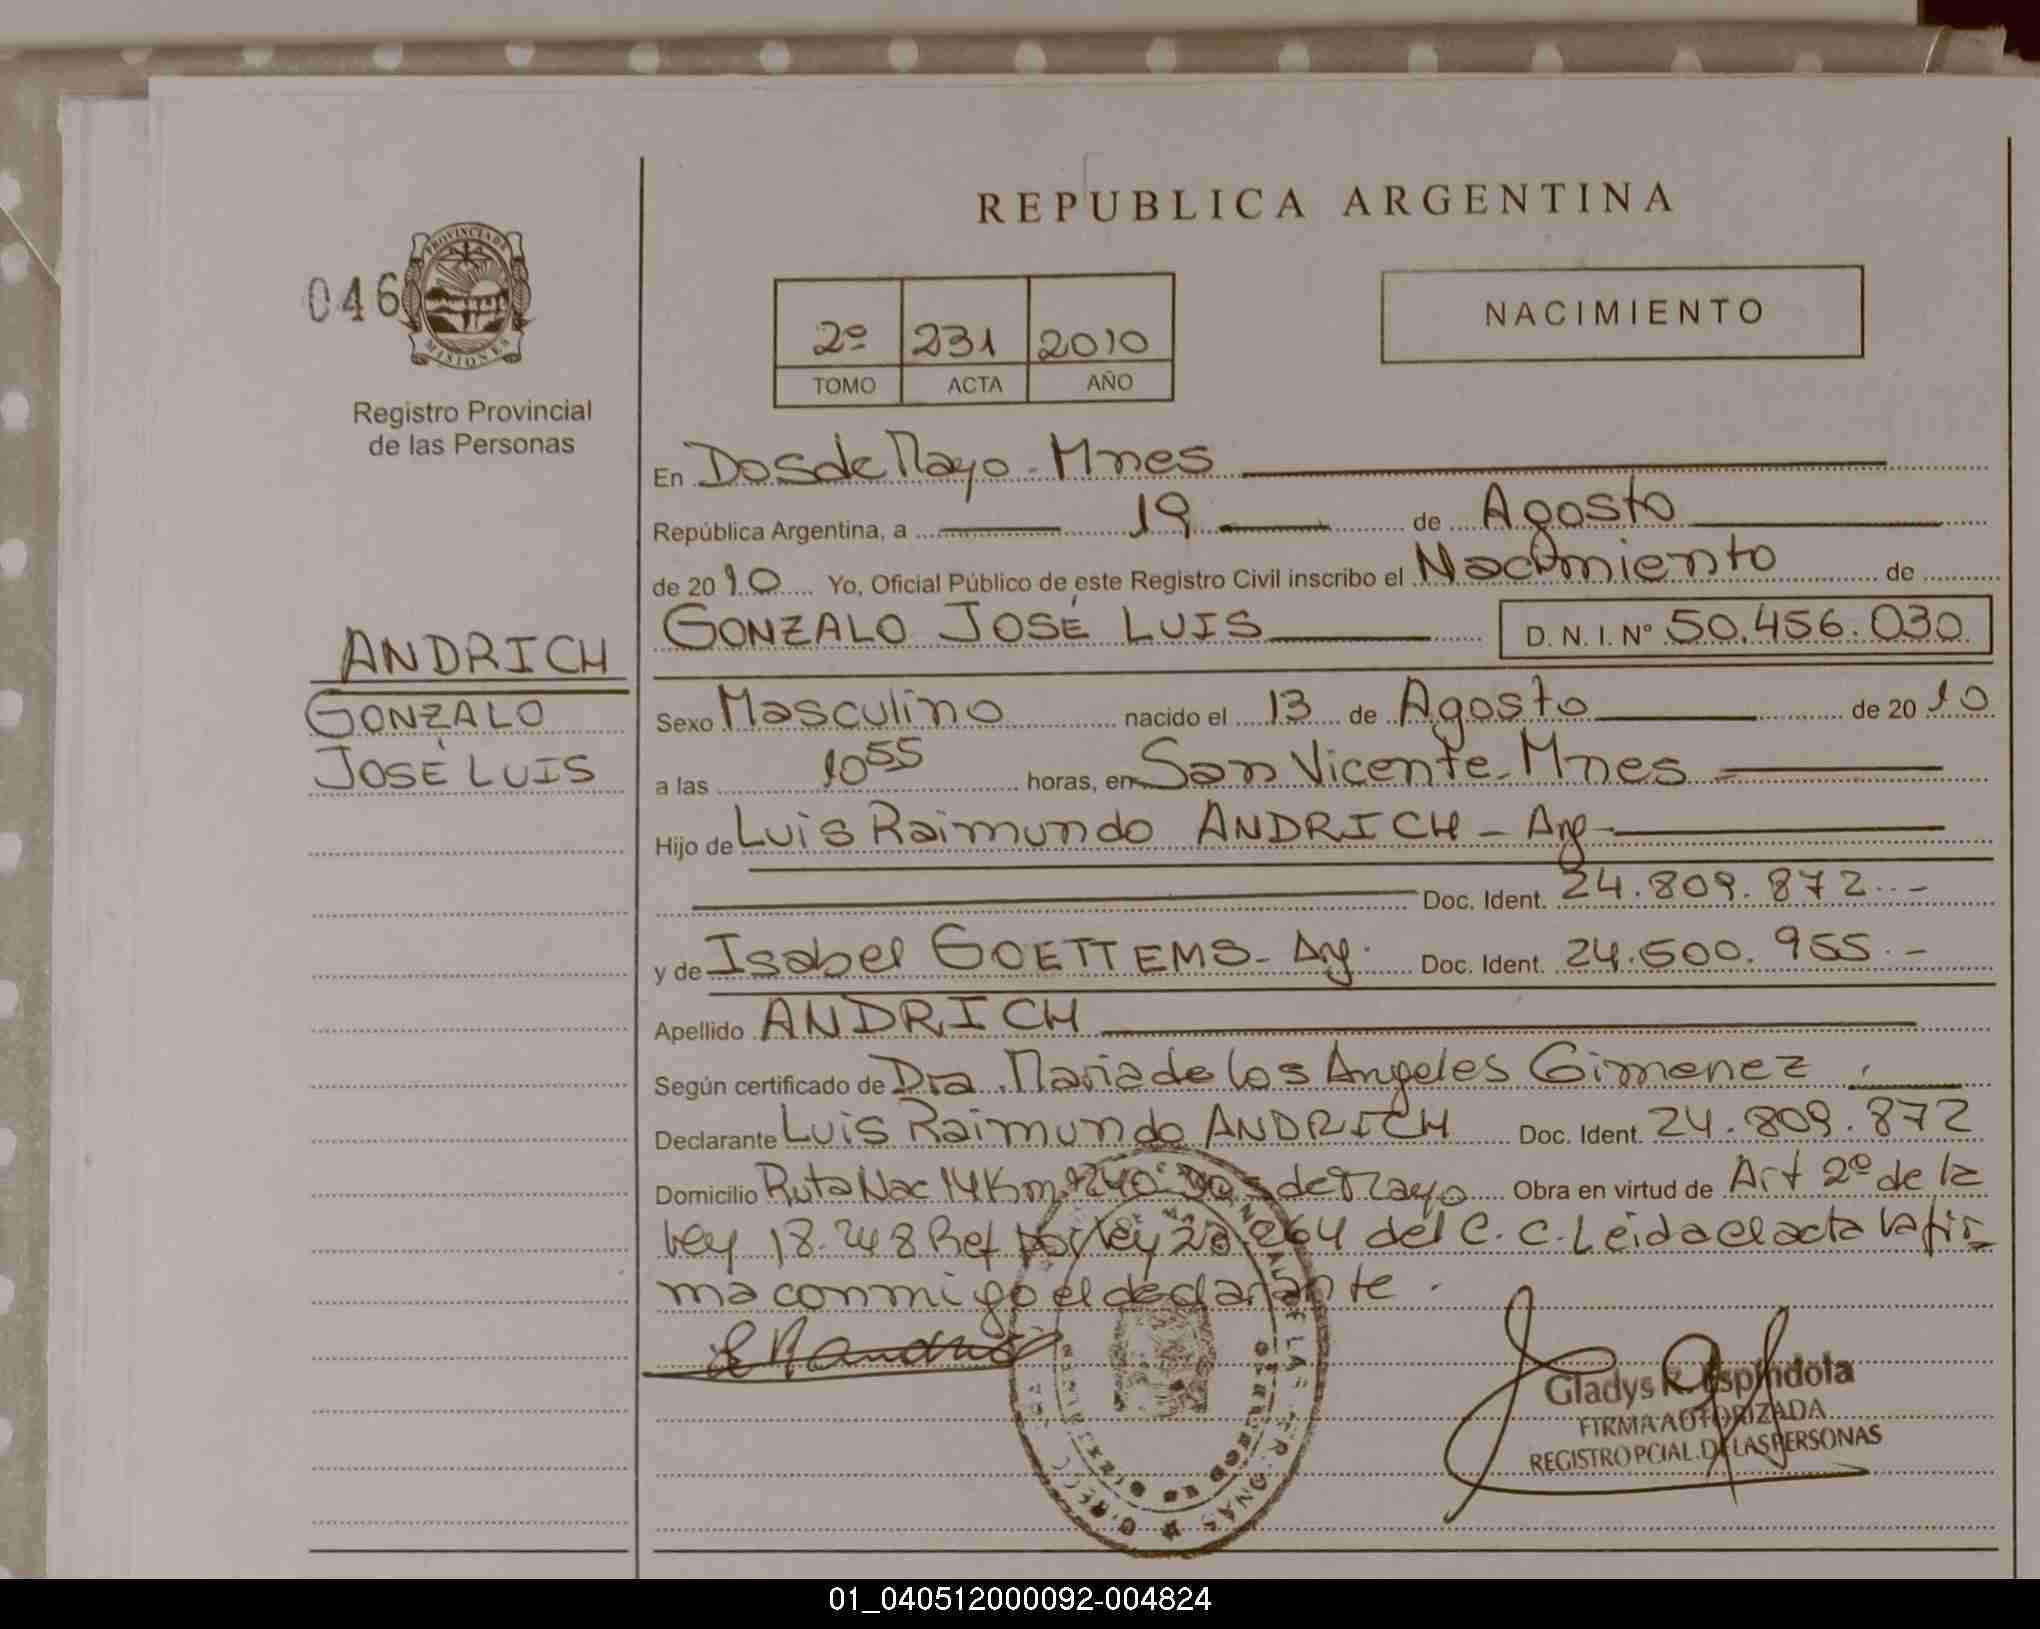 REPUBLICA ARGENTINA
046
PROVINCIA DE
MISIONES
Registro Provincial
de las Personas
NACIMIENTO
2º 231 2010
TOMO ACTA AÑO
En Dos de Mayo - Mnes
República Argentina, a 19 de Agosto
de 2010 Yo, Oficial Público de este Registro Civil inscribo el Nacimiento de
GONZALO JOSÉ LUIS D. N. I. Nº 50.456.030
ANDRICH
GONZALO
JOSÉ LUIS
Sexo Masculino nacido el 13 de Agosto de 2010
a las 10 55 horas, en San Vicente - Mnes
Hijo de Luis Raimundo ANDRICH - Arg -
Doc. Ident. 24.809.872.-
y de Isabel GOETTEMS - Arg. Doc. Ident. 24.500.955.-
Apellido ANDRICH
Según certificado de Dra. Maria de los Angeles Gimenez
Declarante Luis Raimundo ANDRICH Doc. Ident. 24.809.872
Domicilio Ruta Nac 14 Km de Mayo Obra en virtud de Art 2º de la
Ley 18.248 Ref por Ley 264 del C. C. Leida el acta la fir
ma conmigo el declarante.
Gladys R. Espindola
FIRMA AUTORIZADA
REGISTRO PCIAL. DE LAS PERSONAS
01_040512000092-004824